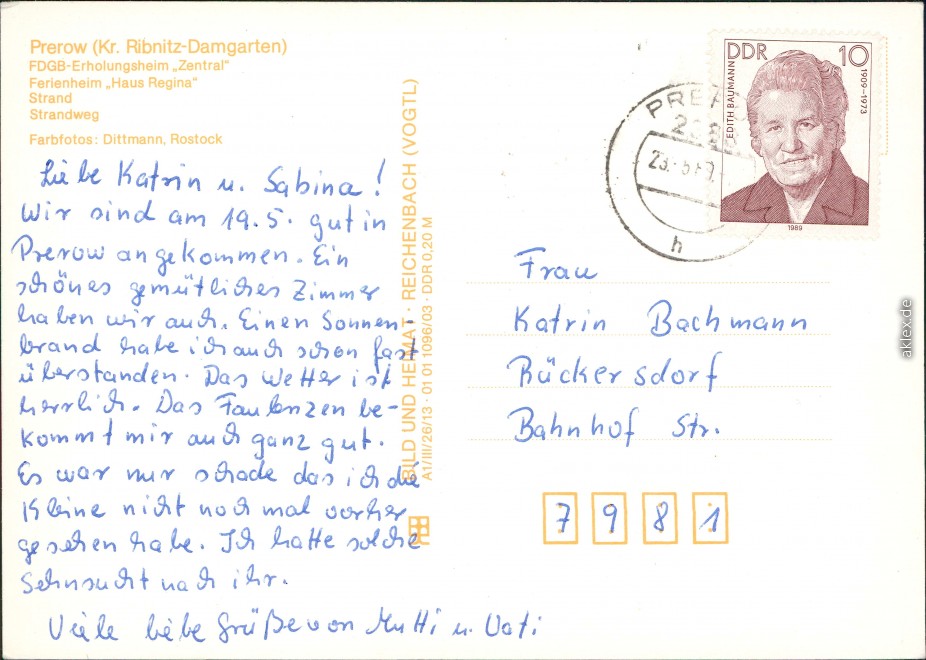 Prerow (Kr. Ribnitz-Damgarten)
FDGB-Erholungsheim „Zentral“
Ferienheim „Haus Regina“
Strand
Strandweg
Farbfotos: Dittmann, Rostock
Liebe Katrin u. Sabina!
Wir sind am 19.5. gut in
Prerow angekommen. Ein
schönes gemütliches Zimmer
haben wir auch. Einen Sonnen-
brand habe ich auch schon fast
überstanden. Das Wetter ist
herrlich. Das Faulenzen be-
kommt mir auch ganz gut.
Es war nur schade das ich die
Kleine nicht noch mal vorher
gesehen habe. Ich hatte solche
Sehnsucht nach ihr.
Viele liebe Grüße von Mutti u. Vati
BILD UND HEIMAT · REICHENBACH (VOGTL)
A1/III/26/13 · 01 01 1096/03 · DDR 0,20 M
DDR 10
EDITH BAUMANN
1909–1973
1989
h
Frau
Katrin Bachmann
Rückersdorf
Bahnhof Str.
7981
aklex.de